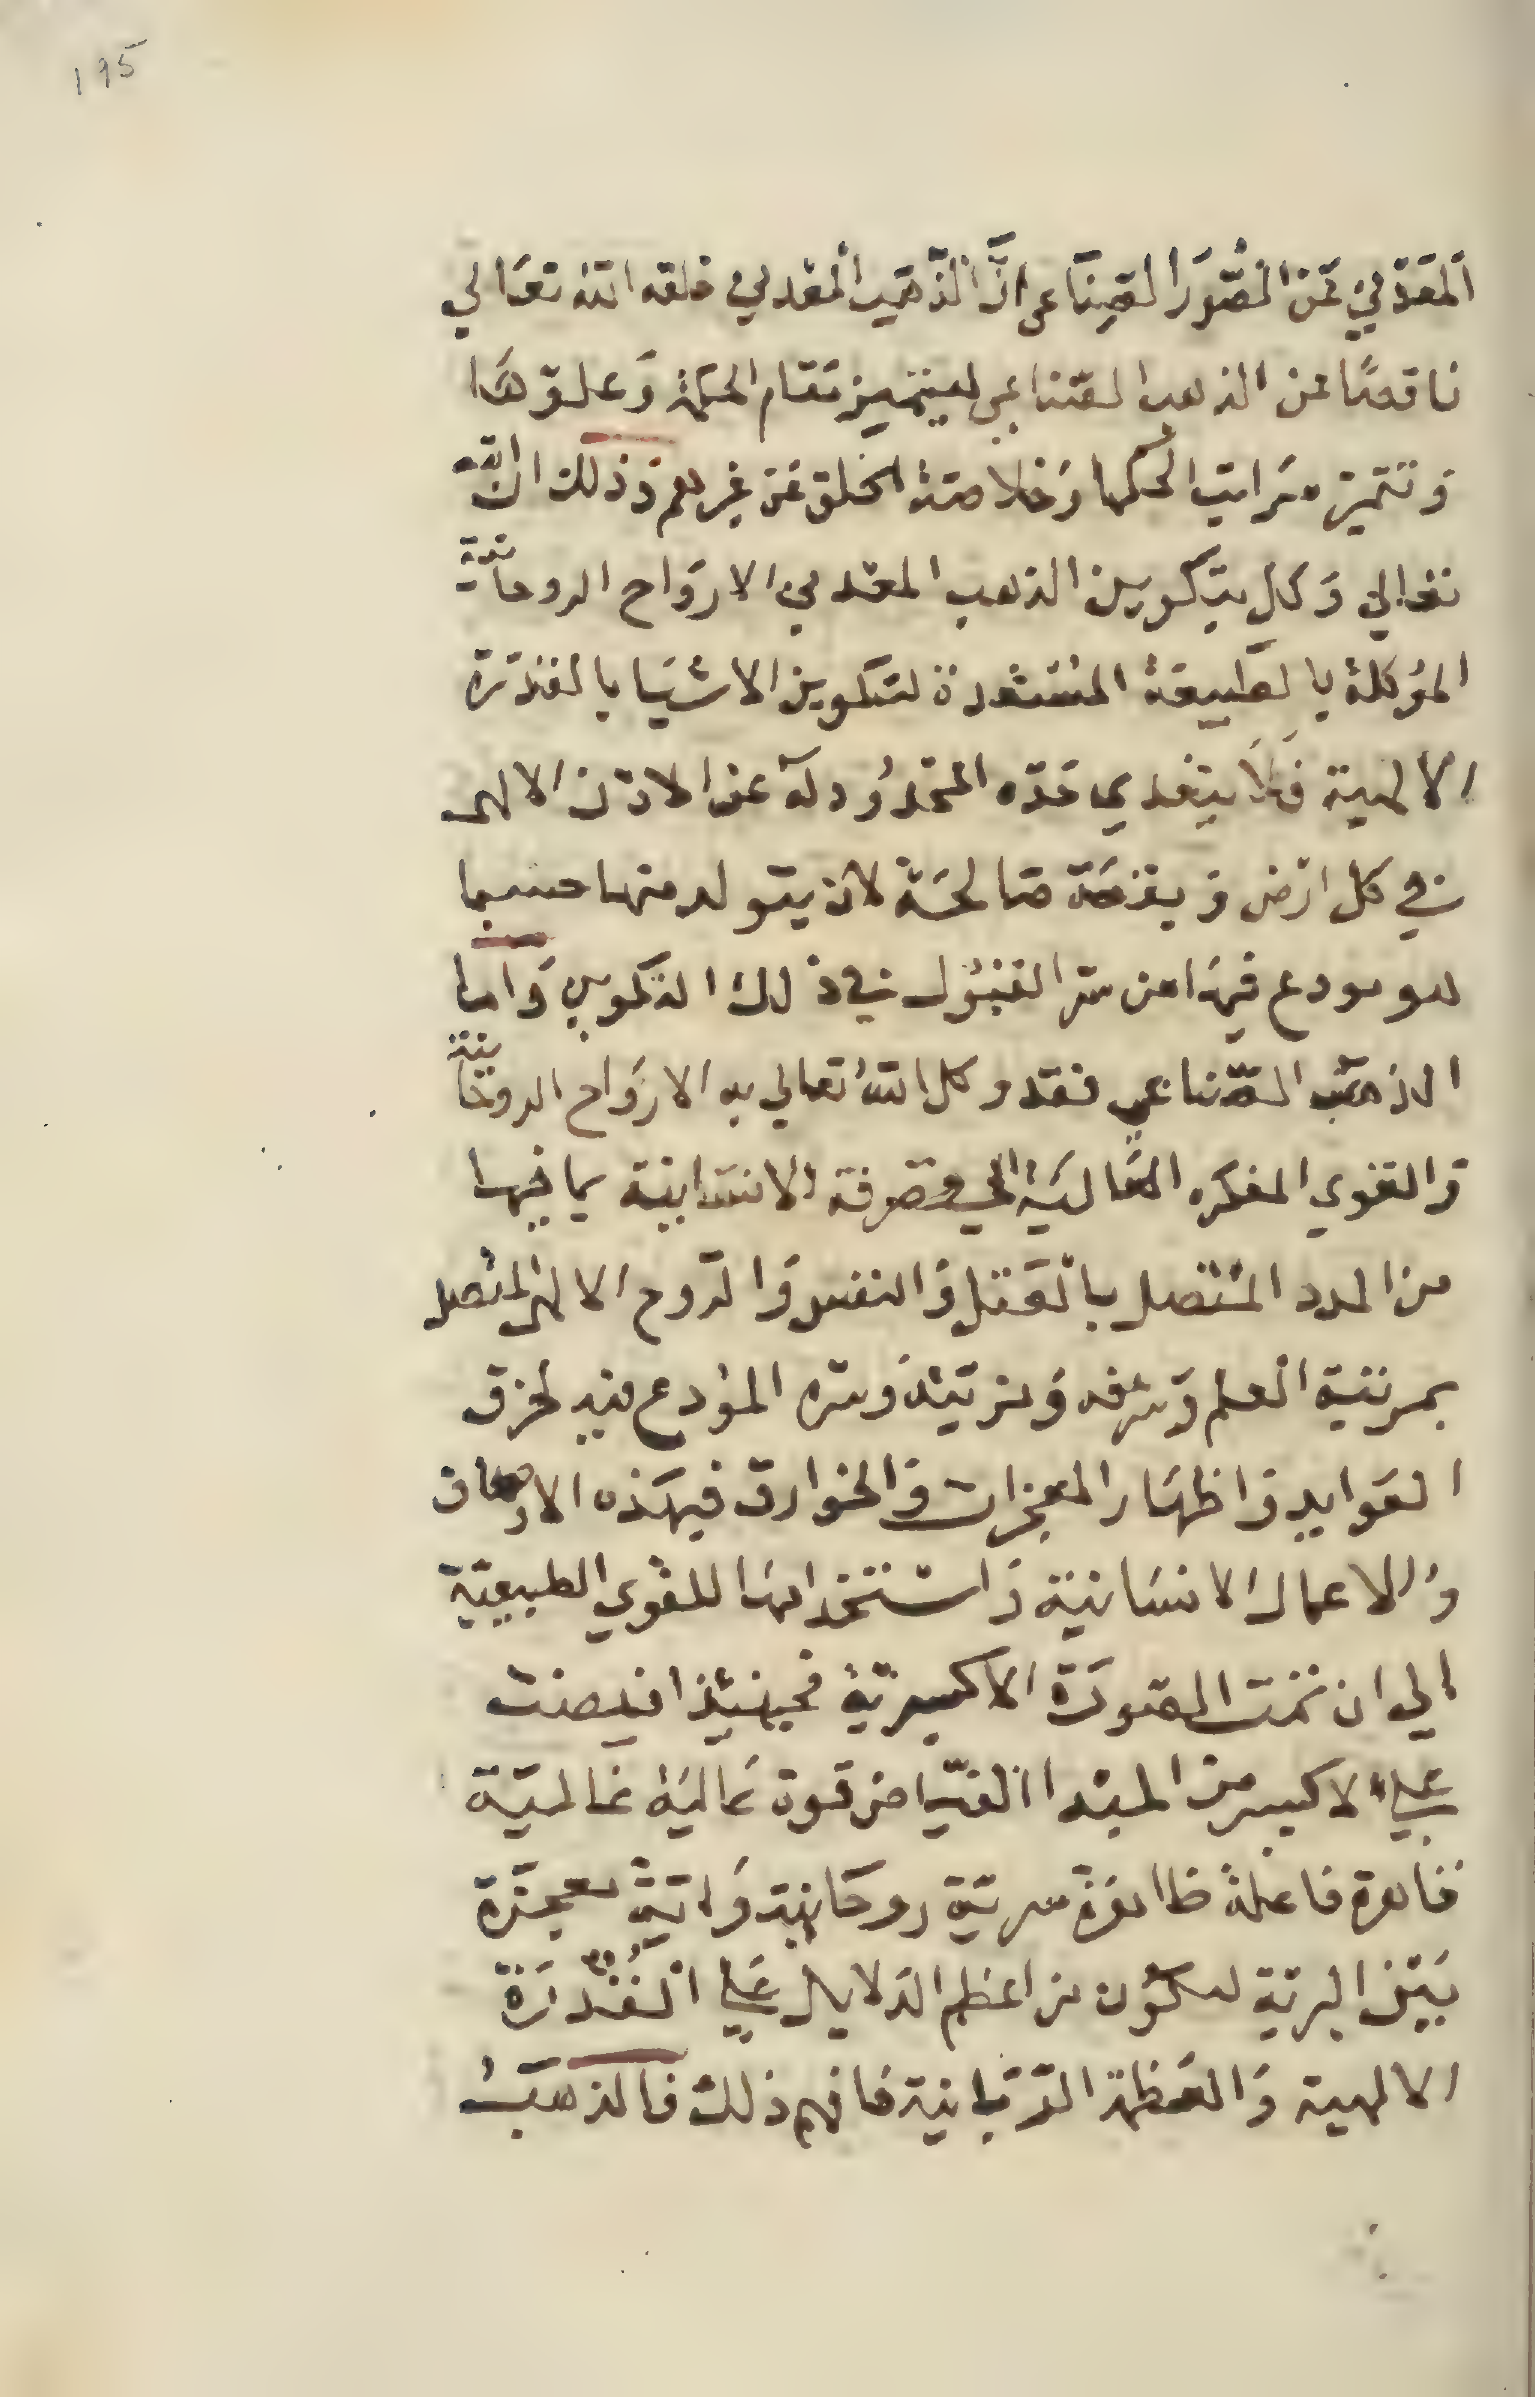 195
المعدني عن المصور الصناعي ان الذهب المعدني خلقه الله تعالي
ناقصًا عن الذهب الصناعي ليتميز مقام الحكمة وعلوها
وتتميز مراتب الحكما وخلاصة الخلق عن غيرهم وذلك ان الله
تعالي وكل بتكوين الذهب المعدني الارواح الروحانية
الموكلة بالطبيعة المستعدة لتكوين الاشيا بالقدرة
الالهية فلا يتعدي حده المحدود له عن الاذن الالهي
في كل ارض وبقعة صالحة لان يتولد منها حسبما
هو مودع فيها من سر القبول في ذلك التكوين واما
الذهب الصناعي فقد وكل الله تعالي به الارواح الروحانية
والقوي المفكره الفعالية المتصرفة الانسانية بما فيها
من المدد المتصل بالعقل والنفس والروح الالهي المتصل
بمرتبة العلم وشرفه ومزيته وسره المودع فيه لخرق
العوايد واظهار المعجزات والخوارق فبهذه الاوصاف
والاعمال الانسانية واستخدامها للقوي الطبيعية
الي ان تمت الصورة الاكسيرية فحينئذ افيضت
علي الاكسير من المبدا الفياض قوة عالية عالمية
قاهرة فاعلة ظافرة سرية روحانية واتية معجزة
بين البرية لتكون من اعظم الدلايل علي القدرة
الالهية والعظمة الربانية فافهم ذلك فالذهب